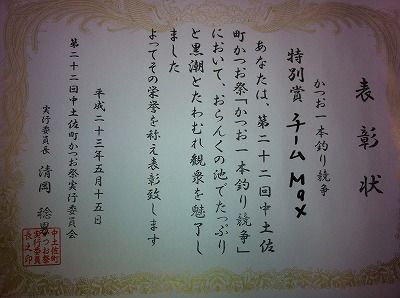 表彰状
かつお一本釣り競争
特別賞 チームMax
あなたは、第二十二回中土佐
町かつお祭「かつお一本釣り競争」
において、おらんくの池でたっぷり
と黒潮とたわむれ観衆を魅了し
ました
よってその栄誉を称え表彰致します
平成二十三年五月十五日
第二十二回中土佐町かつお祭実行委員会
実行委員長 清岡
中土佐町
かつお祭
実行委員
長之印